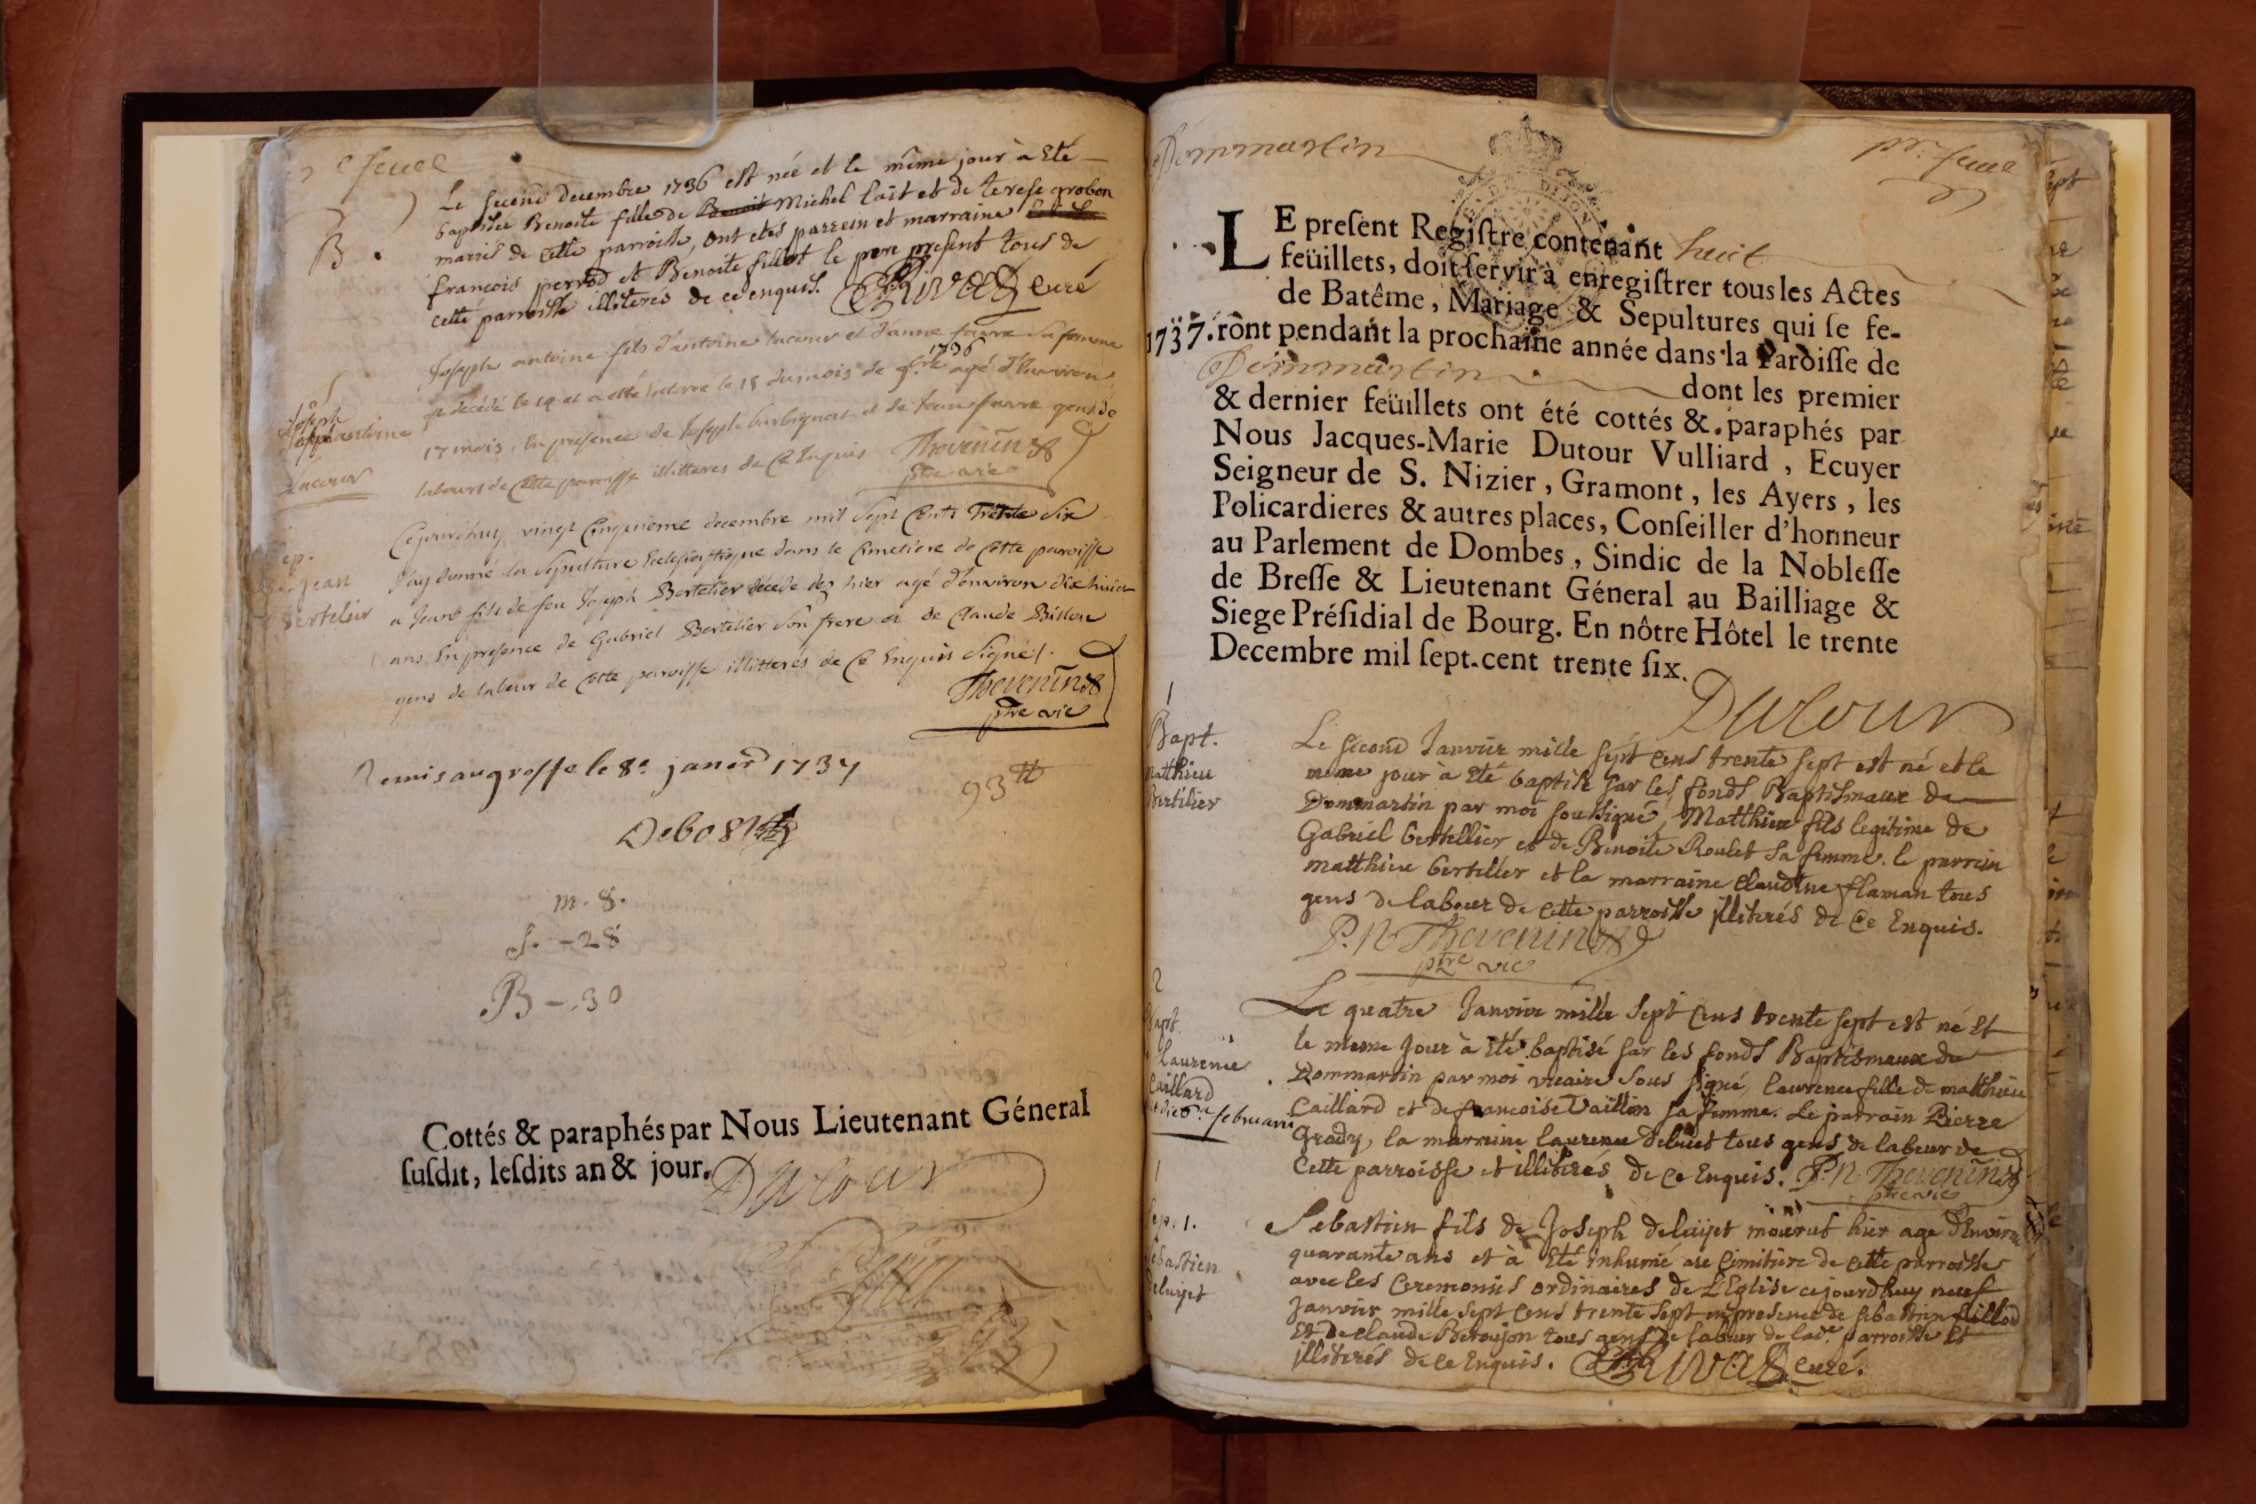 feuel
B
Le second decembre 1736 est née et le même jour à Eté
baptisée Benoite fille de Benoit Michel lait et de terese grobon
mariés de cette parroisse, ont etés parrein et marraine
francois perrod et Benoite fillot le pere present tous de
cette parroisse illiterés de ce enquis. curé
Joseph antoine fils d'antoine lacour et d'anne favre sa femme
1736
est decédé le 14 et a etté enterré le 15 du mois de agé d'environ
17 mois, En presence de Joseph et de favre gens de
labeurs de Cette paroisse illitteres de Ce Enquis Thevenin
ptre vic
Joseph
antoine
Lacour
Cejourdhuy vingt Cinquieme decembre mil Sept Cents Trente Six
J'ay donné la Sepulture Eclesiastique dans le Cimetiere de Cette paroisse
a Jean fils de feu Joseph Bertelier décédé des hier agé d'environ dix huict
ans, En presence de Gabriel Bertelier Son frere et de Claude Billon
gens de labeur de Cette paroisse illitterés de Ce Enquis Signé.
Thevenin
ptre vic
Sep.
Jean
Bertelier
Remis au greffe le 8e janer 1737
93tt
Debost
m. 8.
S. - 28
B - 30
Cottés & paraphés par Nous Lieutenant Géneral
susdit, lesdits an & jour. Dutour
Dommartin
pr. feuel
LE present Registre contenant huit
feüillets, doit servir à enregistrer tous les Actes
de Batême, Mariage & Sepultures qui se fe-
1737. ront pendant la prochaine année dans la Paroisse de
Dommartin dont les premier
& dernier feüillets ont été cottés & paraphés par
Nous Jacques-Marie Dutour Vulliard, Ecuyer
Seigneur de S. Nizier, Gramont, les Ayers, les
Policardieres & autres places, Conseiller d'honneur
au Parlement de Dombes, Sindic de la Noblesse
de Bresse & Lieutenant Géneral au Bailliage &
Siege Présidial de Bourg. En nôtre Hôtel le trente
Decembre mil sept-cent trente six.
Dutour
1
Bapt.
Matthieu
Bertilier
Le second Janvier mille sept cens trente sept est né et le
meme jour à Eté baptisé sur les fonds Baptismaux de
Dommartin par moi soussigné, Matthieu fils legitime de
Gabriel bertellier et de Benoite Roulet sa femme. le parrein
matthieu bertellier et la marraine Claudine flaman tous
gens de labeur de cette parroisse illiterés de Ce Enquis.
P. N. Thevenin
ptre vic
2
Bapt.
laurence
Caillard
februarii
Le quatre Janvier mille Sept Cens trente sept est né Et
le meme Jour à Eté baptisé sur les fonds Baptismaux de
Dommartin par moi vicaire Sous signé, laurence fille de matthieu
Caillard et de francoise Vaillon sa femme. Le parrain Pierre
Grody, la marraine laurence deluiet tous gens de labeur de
Cette parroisse et illiterés de Ce Enquis. P. N. Thevenin
ptre vic
1
Sep. 1.
Sebastien
deluyet
Sebastien fils de Joseph deluyet mourut hier agé d'Environ
quarante ans et à Eté inhumé au Cimitiere de Cette parroisse
avec les Ceremonies ordinaires de L'Eglise cejourdhuy neuf
Janvier mille sept cens trente sept en presence de sebastien fillod
Et de claude Beroujon tous gens de labeur de lade. parroisse Et
illiterés de Ce Enquis. curé.